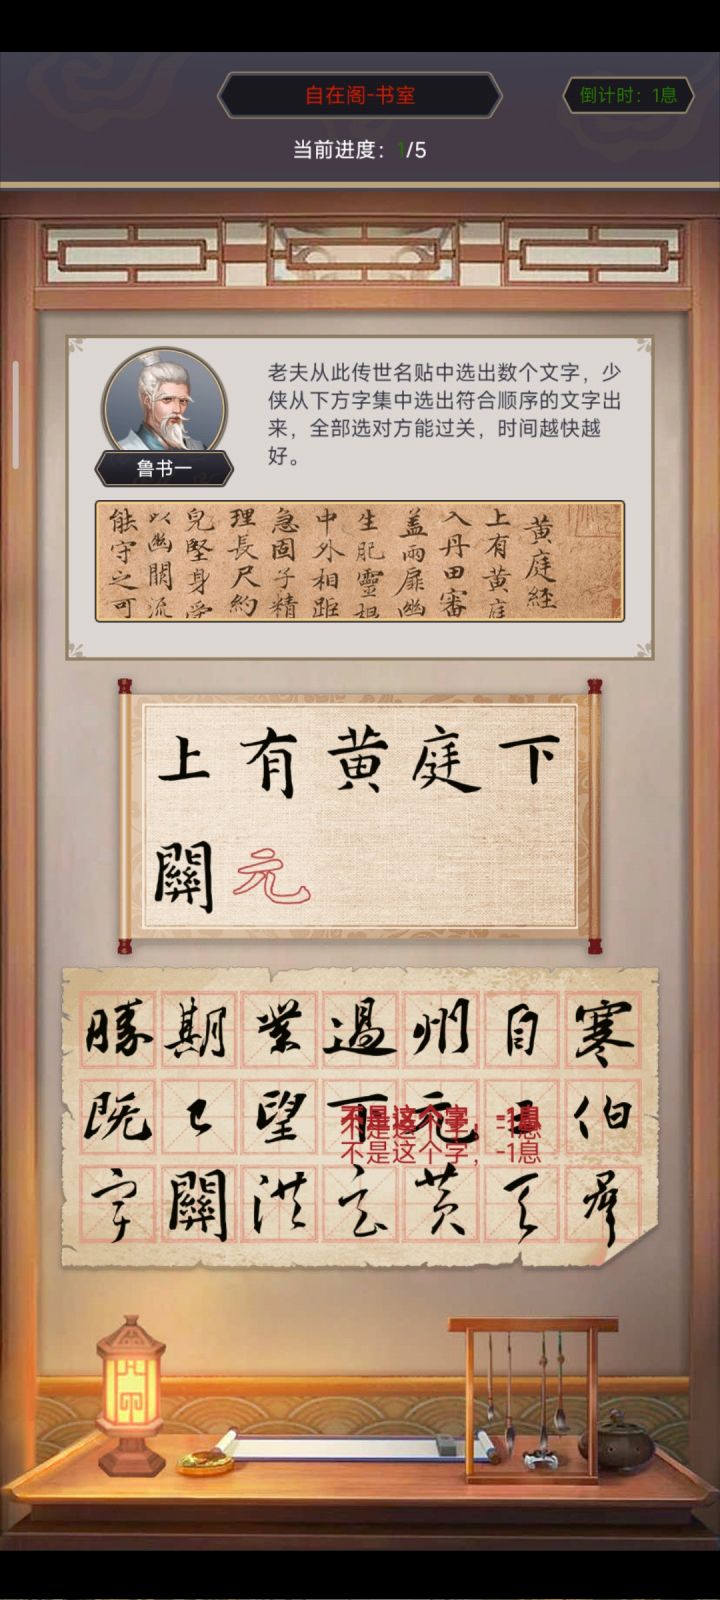 自在阁-书室
倒计时：1息
当前进度：1/5
老夫从此传世名贴中选出数个文字，少
侠从下方字集中选出符合顺序的文字出
来，全部选对方能过关，时间越快越
好。
鲁书一
黄庭経
上有黄庭
入丹田審
盖兩扉幽
生肥靈
中外相距
急固子精
理長尺約
兒堅身受
以幽關流
能守之可
上有黄庭下
關元
勝期業過州自寒
既望下元伯
不是这个字，-1息
不是这个字，-1息
字關洪玄黄天